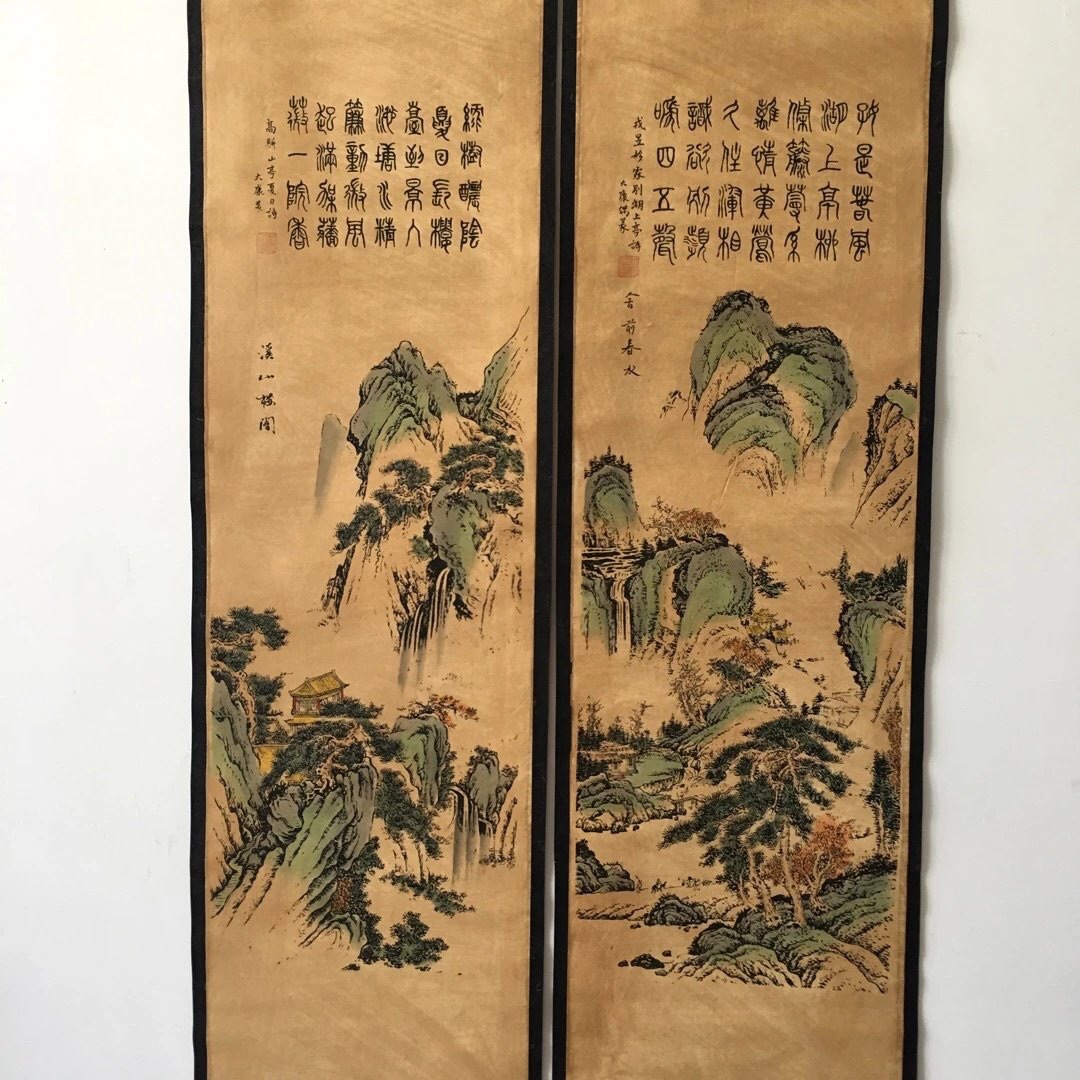 好是春風
湖上亭柳
條籐蔓系
離情黃鶯
久住渾相
識欲別頻
嗁四五聲
戎昱移家別湖上亭詩
大康偶篆
舍前春水
綠樹醲陰
夏日長樓
臺到景入
池塘水精
簾動微風
起滿架薔
薇一院香
高駢山亭夏日詩
大康篆
溪山樓閣